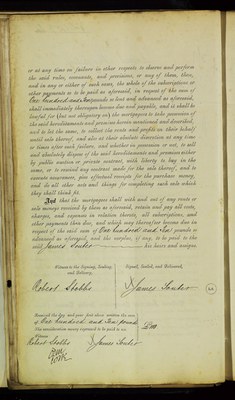 or at any time on failure in other respects to observe and perform
the said rules, covenants, and provisoes, or any of them, then,
and in any or either of such cases, the whole of the subscriptions or
other payments so to be paid as aforesaid, in respect of the sum of
One hundred and ten pounds so lent and advanced as aforesaid,
shall immediately thereupon become due and payable, and it shall be
lawful for (but not obligatory on) the mortgagees to take possession of
the said hereditaments and premises herein mentioned and described,
and to let the same, to collect the rents and profits on their behalf
until sale thereof, and also at their absolute discretion at any time
or times after such failure, and whether in possession or not, to sell
and absolutely dispose of the said hereditaments and premises either
by public auction or private contract, with liberty to buy in the
same, or to rescind any contract made for the sale thereof, and to
execute assurances, give effectual receipts for the purchase money,
and do all other acts and things for completing such sale which
they shall think fit.
And that the mortgagees shall with and out of any rents or
sale moneys received by them as aforesaid, retain and pay all costs,
charges, and expenses in relation thereto, all subscriptions, and
other payments then due, and which may thereafter become due in
respect of the said sum of One hundred and Ten pounds so
advanced as aforesaid, and the surplus, if any, to be paid to the
said James Souter his heirs and assigns.
Witness to the Signing, Sealing,
and Delivery,
Signed, Sealed, and Delivered,
Robert Stobbs
James Souter
Received the day and year first above written the sum
of One hundred and Ten pounds
the consideration money expressed to be paid to me
Witness
Robert Stobbs
James Souter